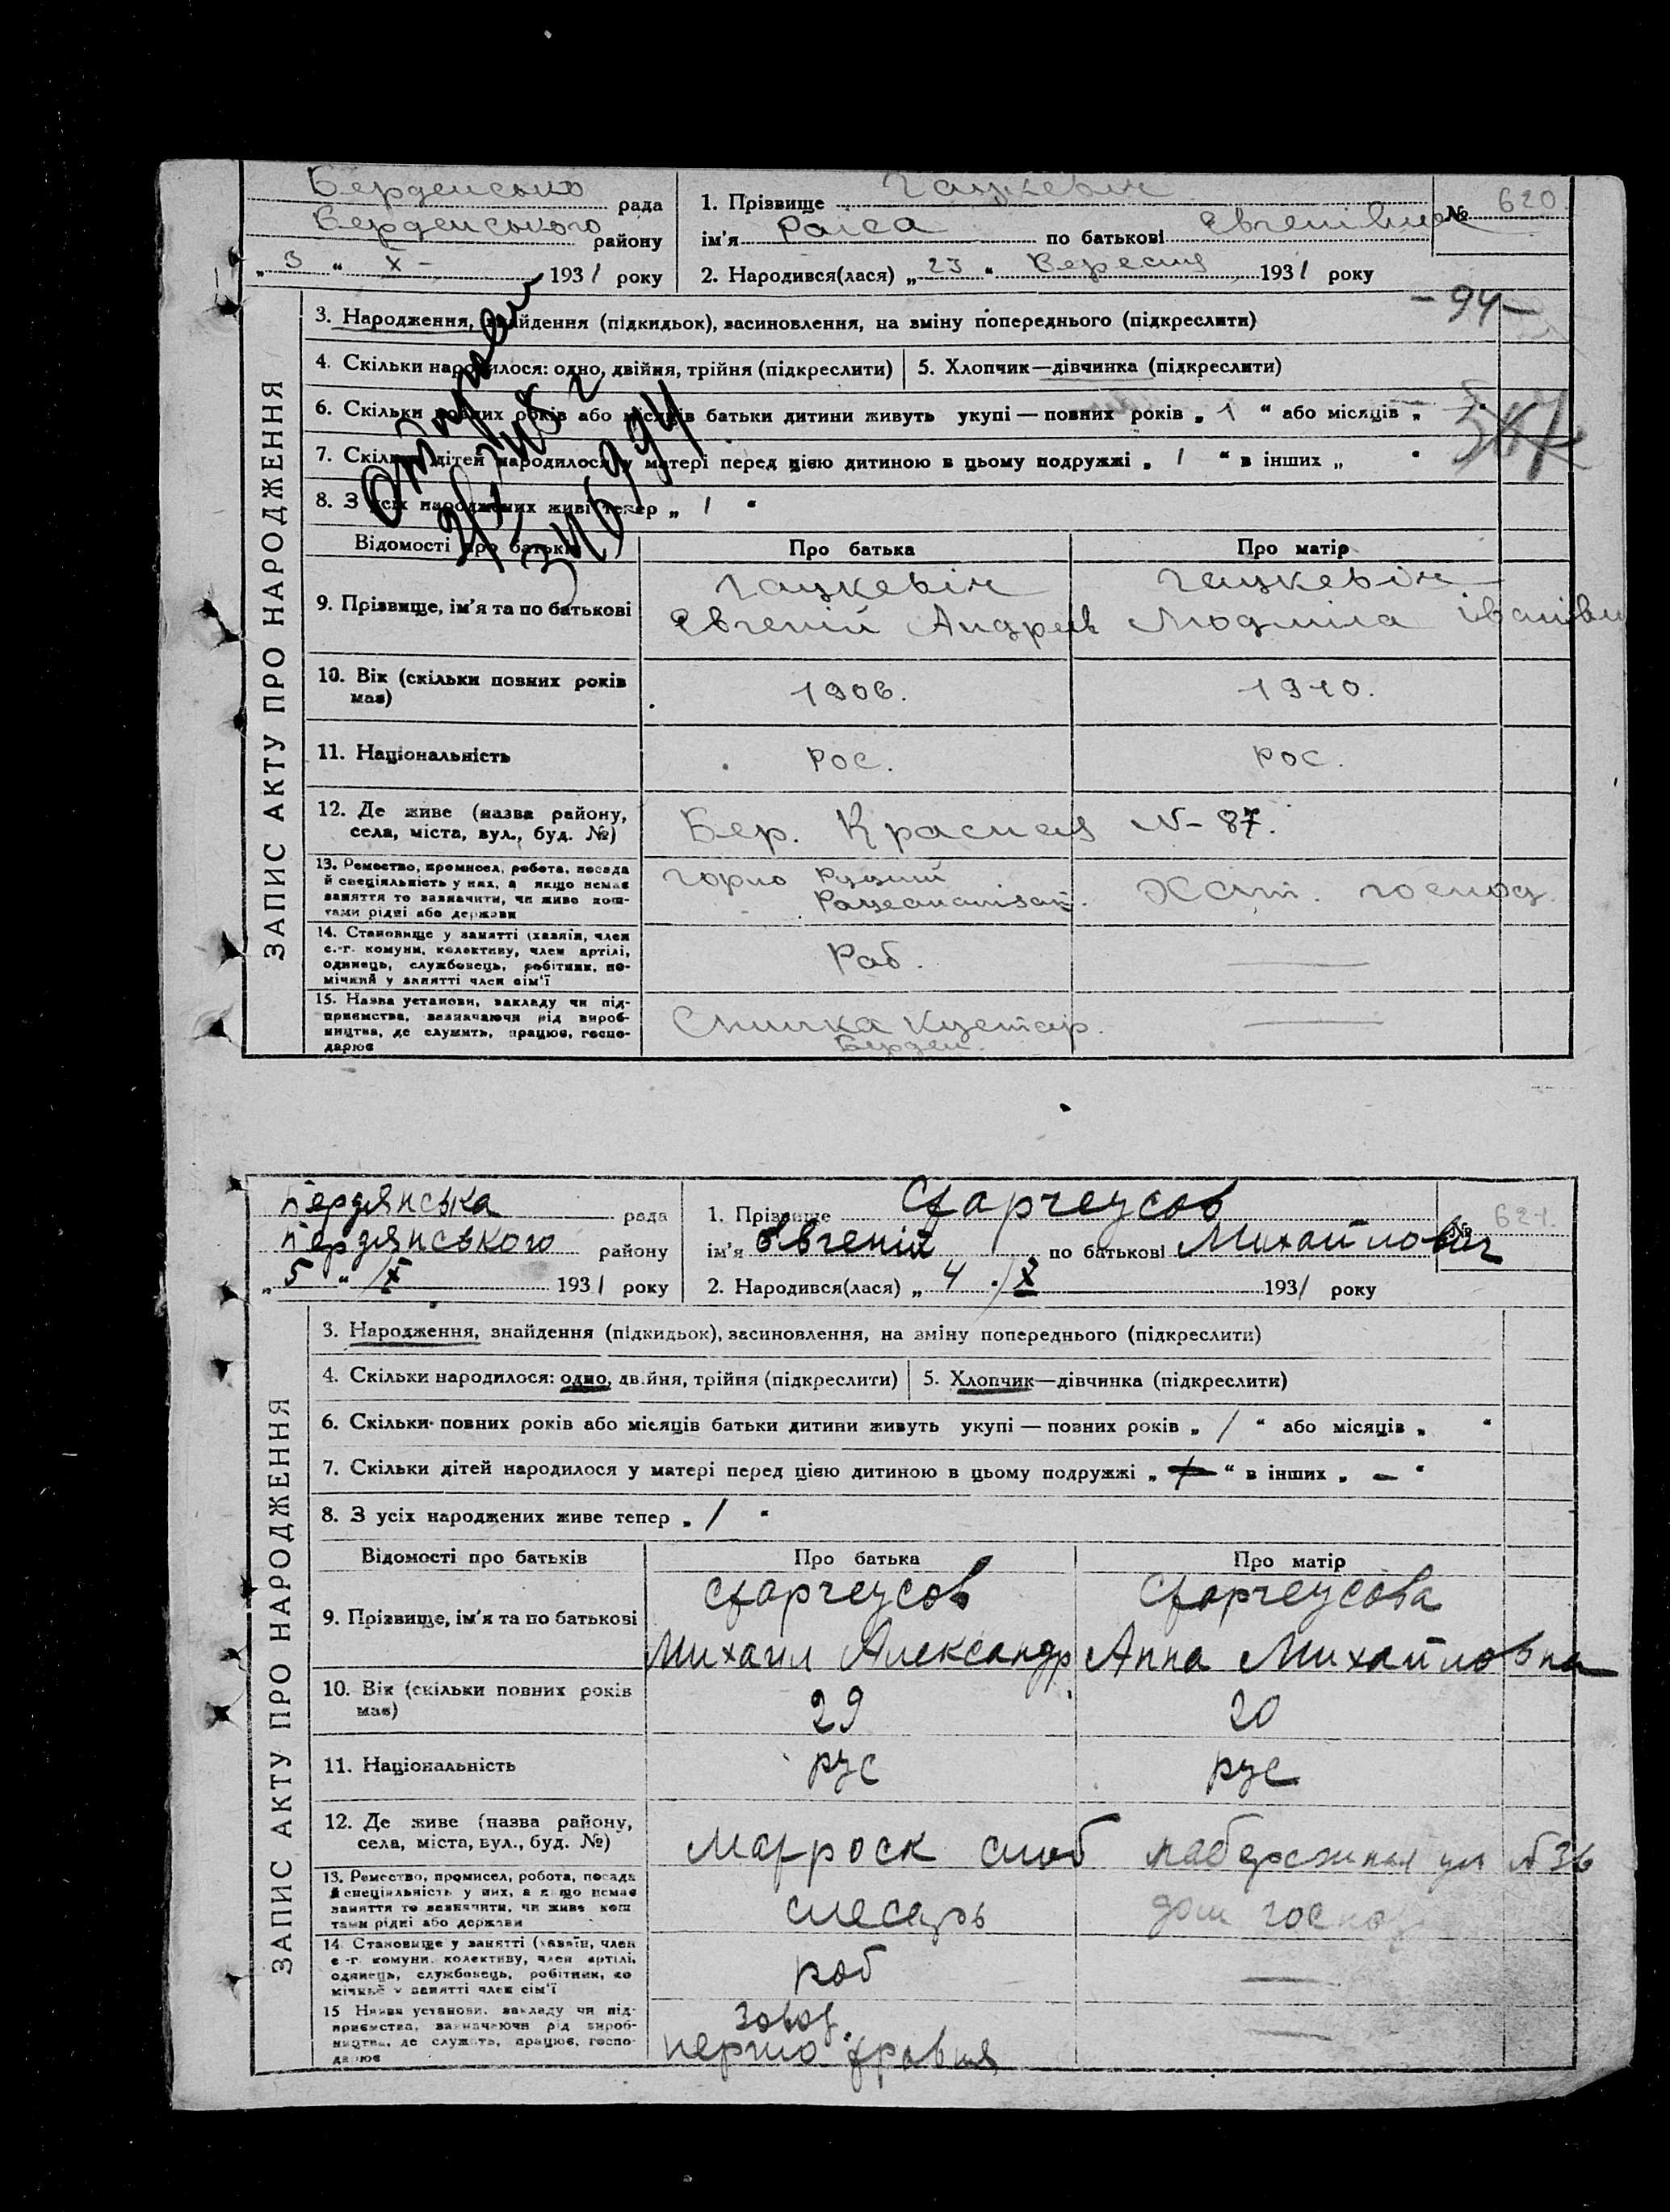 Берденсько рада
Берденського району
„ 3 “ X – 1931 року
1. Прізвище Гацкевіч
ім'я Раіса по батькові Євгенівна
№ 620.
2. Народився(лася) „ 23 “ Вересня 1931 року
– 94 –
ЗАПИС АКТУ ПРО НАРОДЖЕННЯ
3. Народження, знайдення (підкидьок), засиновлення, на зміну попереднього (підкреслити)
4. Скільки народилося: одно, двійня, трійня (підкреслити)
5. Хлопчик—дівчинка (підкреслити)
6. Скільки повних років або місяців батьки дитини живуть укупі — повних років „ 1 “ або місяців „ – “
7. Скільки дітей народилося у матері перед цією дитиною в цьому подружжі „ 1 “ в інших „ “
8. З усіх народжених живі тепер „ 1 “
Відомості про батьків
Про батька
Про матір
9. Прізвище, ім'я та по батькові
Гацкевіч
Євгеній Андреев
Гацкевіч
Людміла Іванівн
10. Вік (скільки повних років має)
1906.
1910.
11. Національність
Рос.
Рос.
12. Де живе (назва району, села, міста, вул., буд. №)
Бер. Красная N– 87.
13. Ремество, промисел, робота, посада
й спеціяльність у них, а якщо немає
заняття то зазначити, чи живе кош-
тами рідні або держави
Хат. господ.
14. Становище у занятті (хазяїн, член
с.-г. комуни, колективу, член артілі,
одинець, службовець, робітник, по-
мічний у занятті член сім'ї
Раб.
15. Назва установи, закладу чи під-
приємства, зазначаючи рід вироб-
ництва, де служить, працює, госпо-
дарює
Спилка Кустар.
Берден.
Бердянська рада
Бердянського району
„ 5 “ /X 1931 року
1. Прізвище Старчеусов
ім'я Євгеній по батькові Михайлович
№ 621.
2. Народився(лася) „ 4 “ /X 1931 року
ЗАПИС АКТУ ПРО НАРОДЖЕННЯ
3. Народження, знайдення (підкидьок), засиновлення, на зміну попереднього (підкреслити)
4. Скільки народилося: одно, двійня, трійня (підкреслити)
5. Хлопчик—дівчинка (підкреслити)
6. Скільки повних років або місяців батьки дитини живуть укупі — повних років „ / “ або місяців „ “
7. Скільки дітей народилося у матері перед цією дитиною в цьому подружжі „ “ в інших „ – “
8. З усіх народжених живе тепер „ / “
Відомості про батьків
Про батька
Про матір
9. Прізвище, ім'я та по батькові
Старчеусов
Михаил Александр
Старчеусова
Анна Михайловна
10. Вік (скільки повних років має)
29
20
11. Національність
рус
рус
12. Де живе (назва району, села, міста, вул., буд. №)
Матроск слоб набережная ул №36
13. Ремество, промисел, робота, посада
й спеціяльність у них, а якщо немає
заняття то зазначити, чи живе кош
тами рідні або держави
слесарь
дом господ
14. Становище у занятті (хазяїн, член
с.-г. комуни, колективу, член артілі,
одинець, службовець, робітник, по
мічний у занятті член сім'ї
роб
15 Назва установи, закладу чи під-
приємства, зазначаючи рід вироб-
ництва, де служить, працює, госпо-
дарює
завод
першо травня